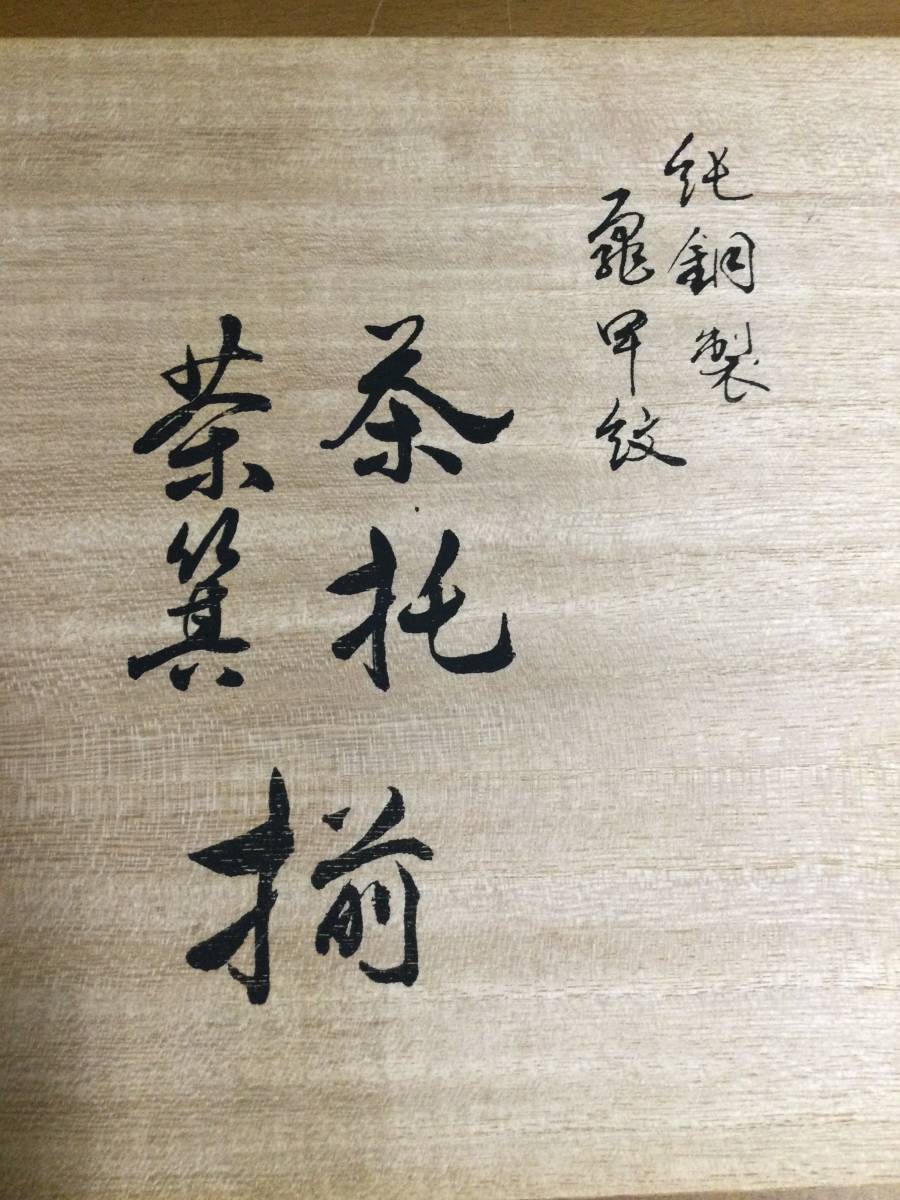 純銅製
亀甲紋
茶托
茶箕
揃